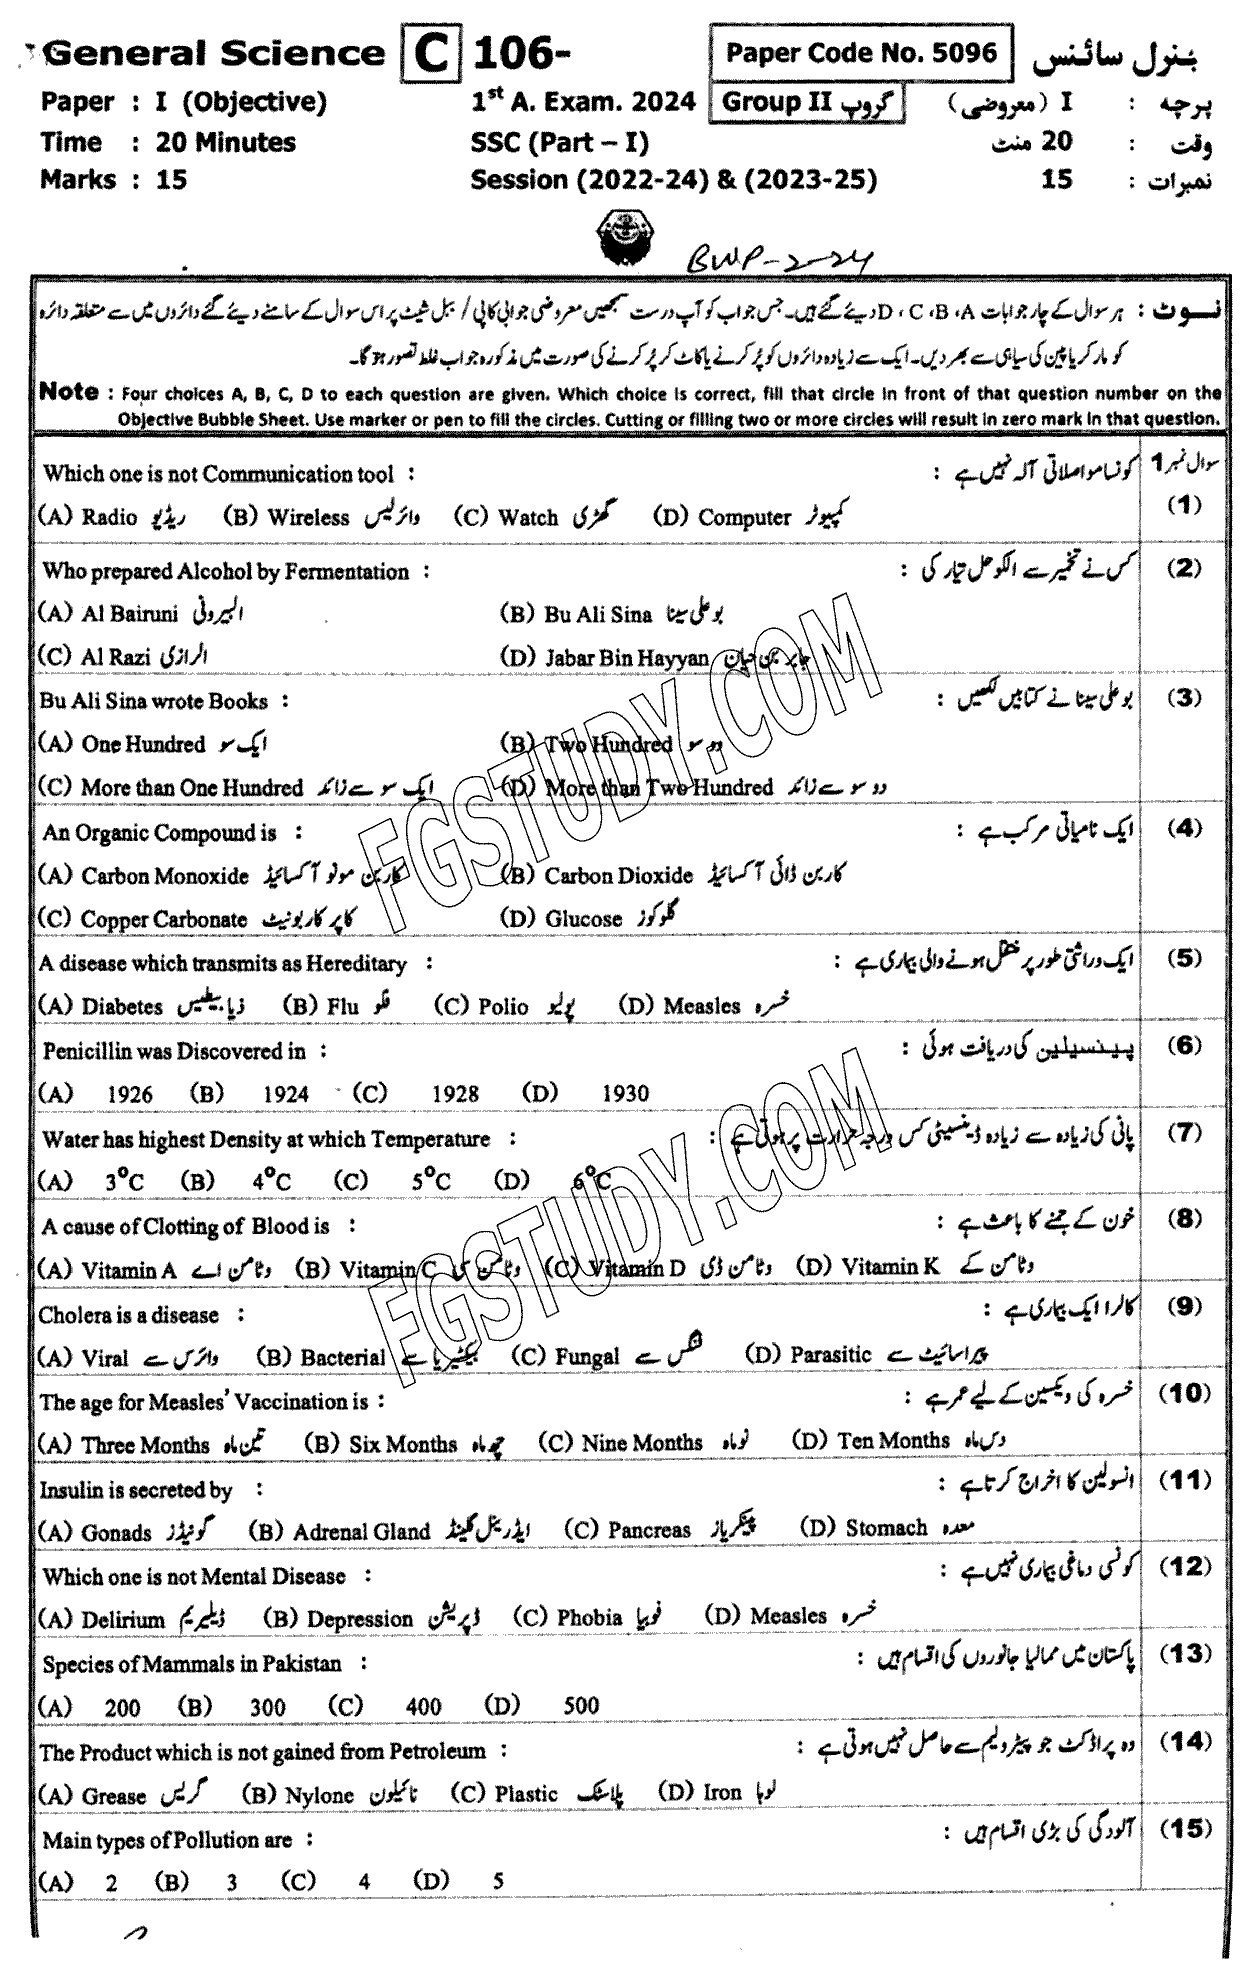 General Science C 106- Paper Code No. 5096 جنرل سائنس
Paper : I (Objective) 1st A. Exam. 2024 Group II گروپ پرچہ : I (معروضی)
Time : 20 Minutes SSC (Part – I) وقت : 20 منٹ
Marks : 15 Session (2022-24) & (2023-25) نمبرات : 15
BWP-2-24
نوٹ : ہر سوال کے چار جوابات D ، C ، B ، A دیئے گئے ہیں۔ جس جواب کو آپ درست سمجھیں معروضی جوابی کاپی / ببل شیٹ پر اس سوال کے سامنے دیئے گئے دائروں میں سے متعلقہ دائرہ
کو مارکر یا پین کی سیاہی سے بھر دیں۔ ایک سے زیادہ دائروں کو پُر کرنے یا کاٹ کر پُر کرنے کی صورت میں مذکورہ جواب غلط تصور ہو گا۔
Note : Four choices A, B, C, D to each question are given. Which choice is correct, fill that circle in front of that question number on the
Objective Bubble Sheet. Use marker or pen to fill the circles. Cutting or filling two or more circles will result in zero mark in that question.
Which one is not Communication tool : کونسا مواصلاتی آلہ نہیں ہے : سوال نمبر 1
(A) Radio ریڈیو (B) Wireless وائرلیس (C) Watch گھڑی (D) Computer کمپیوٹر (1)
Who prepared Alcohol by Fermentation : کس نے تخمیر سے الکوحل تیار کی : (2)
(A) Al Bairuni البیرونی (B) Bu Ali Sina بو علی سینا
(C) Al Razi الرازی (D) Jabar Bin Hayyan جابر بن حیان
Bu Ali Sina wrote Books : بو علی سینا نے کتابیں لکھیں : (3)
(A) One Hundred ایک سو (B) Two Hundred دو سو
(C) More than One Hundred ایک سو سے زائد (D) More than Two Hundred دو سو سے زائد
An Organic Compound is : ایک نامیاتی مرکب ہے : (4)
(A) Carbon Monoxide کاربن مونو آکسائیڈ (B) Carbon Dioxide کاربن ڈائی آکسائیڈ
(C) Copper Carbonate کاپر کاربونیٹ (D) Glucose گلوکوز
A disease which transmits as Hereditary : ایک وراثتی طور پر منتقل ہونے والی بیماری ہے : (5)
(A) Diabetes ذیابیطیس (B) Flu فلو (C) Polio پولیو (D) Measles خسرہ
Penicillin was Discovered in : پینسیلین کی دریافت ہوئی : (6)
(A) 1926 (B) 1924 (C) 1928 (D) 1930
Water has highest Density at which Temperature : پانی کی زیادہ سے زیادہ ڈینسیٹی کس درجہ حرارت پر ہوتی ہے : (7)
(A) 3°C (B) 4°C (C) 5°C (D) 6°C
A cause of Clotting of Blood is : خون کے جمنے کا باعث ہے : (8)
(A) Vitamin A وٹامن اے (B) Vitamin C وٹامن سی (C) Vitamin D وٹامن ڈی (D) Vitamin K وٹامن کے
Cholera is a disease : کالرا ایک بیماری ہے : (9)
(A) Viral وائرس سے (B) Bacterial بیکٹیریا سے (C) Fungal فنگس سے (D) Parasitic پیراسائیٹ سے
The age for Measles' Vaccination is : خسرہ کی ویکسین کے لیے عمر ہے : (10)
(A) Three Months تین ماہ (B) Six Months چھ ماہ (C) Nine Months نو ماہ (D) Ten Months دس ماہ
Insulin is secreted by : انسولین کا اخراج کرتا ہے : (11)
(A) Gonads گونیڈز (B) Adrenal Gland ایڈرینل گلینڈ (C) Pancreas پینکریاز (D) Stomach معدہ
Which one is not Mental Disease : کونسی دماغی بیماری نہیں ہے : (12)
(A) Delirium ڈیلیریم (B) Depression ڈپریشن (C) Phobia فوبیا (D) Measles خسرہ
Species of Mammals in Pakistan : پاکستان میں ممالیا جانوروں کی اقسام ہیں : (13)
(A) 200 (B) 300 (C) 400 (D) 500
The Product which is not gained from Petroleum : وہ پراڈکٹ جو پیٹرولیم سے حاصل نہیں ہوتی ہے : (14)
(A) Grease گریس (B) Nylone نائیلون (C) Plastic پلاسٹک (D) Iron لوہا
Main types of Pollution are : آلودگی کی بڑی اقسام ہیں : (15)
(A) 2 (B) 3 (C) 4 (D) 5
FGSTUDY.COM
FGSTUDY.COM